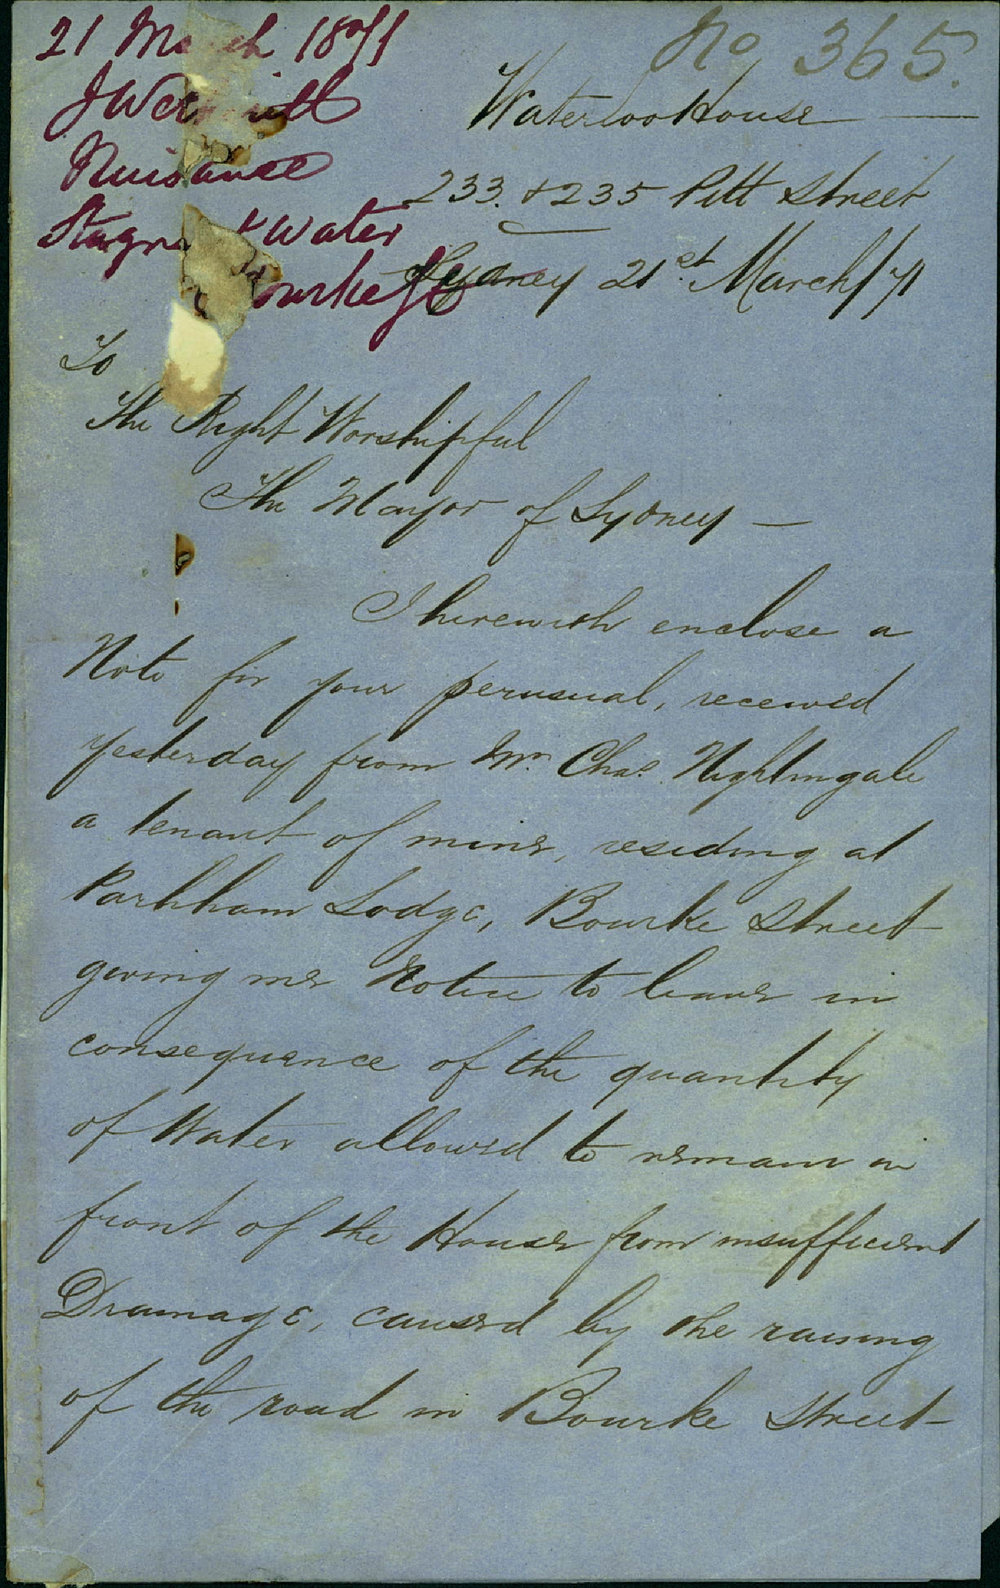 21 March 1871
No 365.
Nuisance
Stagnant Water
Bourke St
Waterloo House
233. & 235 Pitt Street
Sydney 21st March/71
To
The Right Worshipful
The Mayor of Sydney —
I herewith enclose a
Note for your perusual, received
yesterday from Mr. Chas. Nightingale
a tenant of mine, residing at
Parkham Lodge, Bourke Street
giving me Notice to leave in
consequence of the quantity
of Water allowed to remain in
front of the House from insufficient
Drainage, caused by the raising
of the road in Bourke Street